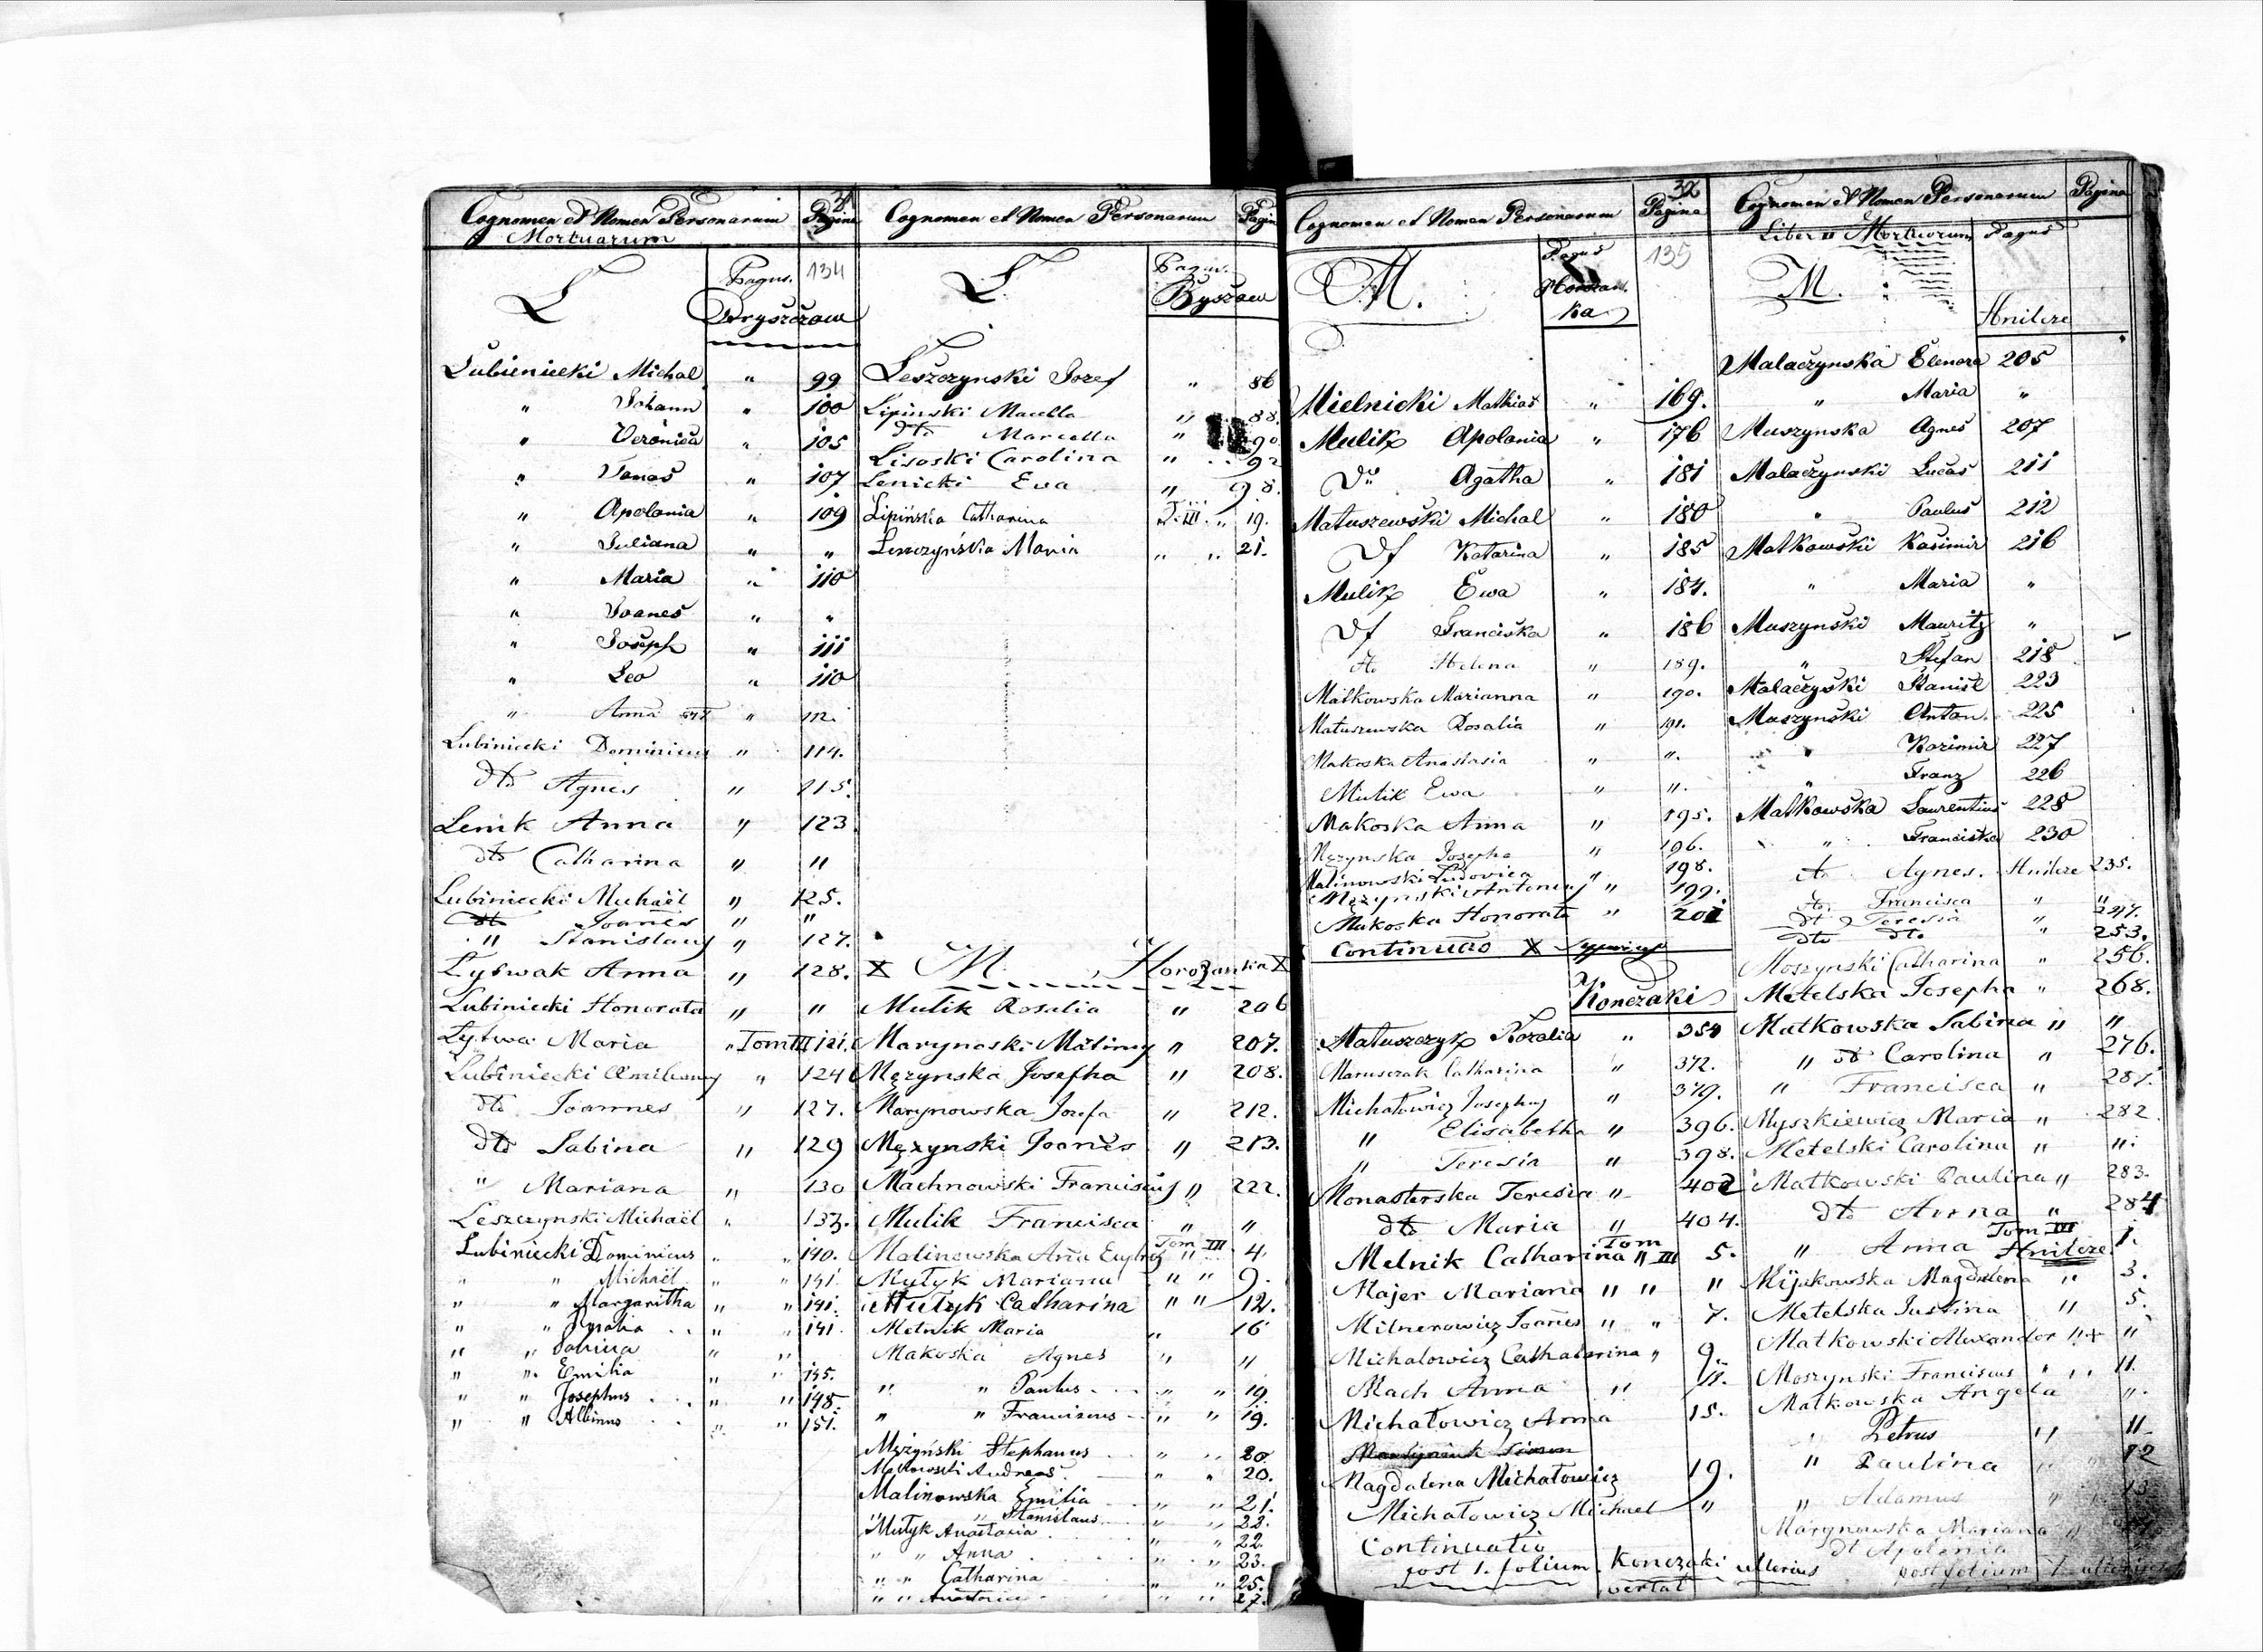 Cognomen et Nomen Personarum Pagina
Mortuarum
L Pagus. 134
Dryszczow
Lubieniecki Michal " 99
" Johann " 100
" Veronica " 105
" Tanas " 107
" Apolonia " 109
" Juliana " "
" Maria " 110
" Joanes " "
" Joseph " 111
" Leo " 110
" Anna " 112.
Lubiniecki Dominicus " 114.
dto Agnes " 115.
Lenik Anna " 123.
dto Catharina " "
Lubiniecki Michaël " 125.
dto Joanes " "
" Stanislaus " 127.
Lytwak Anna " 128.
Lubiniecki Honorata " "
Lytwa Maria " Tom III 121.
Lubiniecki Amilianus " 124
dto Joannes " 127.
dto Sabina " 129
" Mariana " 130
Leszczynski Michaël " 137.
Lubiniecki Dominicus " " 140.
" " Michaël " " 141.
" " Margaritha " " 141.
" " " " 141.
" " Sabina " "
" " Emilia " " 145.
" " Josephus " " 148.
" " Albinus " " 151.
Cognomen et Nomen Personarum Pagin
L Pagus.
Byszow
Leszczynski Jozef " 86
Lipinski Maella " 88.
dto Marcella " 90
Lisoski Carolina " 92
Lenicki Ewa " 98.
Lipińska Catharina " T. III. " 19.
Leszczyńska Maria " " 21.
X M. Horożanka X
Mulik Rosalia " 206
Marynoski Matiny " 207.
Męzynska Josefha " 208.
Marynowska Jozefa " 212.
Męzynski Joanes " 213.
Machnowski Franciscus " 222.
Mulik Francisca " "
Malinowska Ana Tom III " 4.
Mytyk Mariana " " 9.
Mutyk Catharina " " 12.
Metnik Maria " 16
Makoska Agnes " "
" " Paulus " " 19.
" " Franciscus " " 19.
Mężyński Stephanus " " 20.
Andreas " " 20.
Malinowska Emilia " " 21.
" " Stanislaus " " 22.
Mutyk Anastasia " " 22.
" " Anna " " 23.
" " Catharina " " 25.
" " Anastasia " " 27.
Cognomen et Nomen Personarum 32 Pagina
M. Pagus 135
Horożan
ka
Mielnicki Mathias " 169.
Mulik Apolonia " 176
Do Agatha " 181
Matuszewski Michal " 180
Do Katarina " 185
Mulik Ewa " 184.
Do Franciska " 186
dto Helena " 189.
Matkowska Marianna " 190.
Matuszewska Rosalia " 191.
Makoska Anastasia " ".
Mulik Ewa " ".
Makoska Anna " 195.
Męzynska Josepha " 196.
Malinowski Ludovica " 198.
Męzynski Antonius " 199.
Makoska Honorata " 201
Continuao X
Kończaki
Matuszczyk Rozalia " 354
Maruszczak Catharina " 372.
Michałowicz Josephus 379.
" Elisabetha " 396.
" Teresia " 398.
Monasterska Teresia " 402
dto Maria " 404.
Melnik Catharina Tom " III 5.
Majer Mariana " " "
Milnerowicz Joanes " " 7.
Michalowicz Cathatarina " 9.
Mach Anna " 11.
Michałowicz Anna 15.
Magdalena Michałowicz 19.
Michałowicz Michael "
Continuatio
post 1. folium. Konczaki ulterius
vertat
Cognomen et Nomen Personarum Pagina
Liber Mortuorum Pagus
M.
Hnilcze
Malaczynska Elenora 205
" Maria "
Muszynska Agnes 207
Malaczynski Lucas 211
" Paulus 212
Matkowski Kasimir 216
" Maria "
Muszynski Mauritz "
" Stefan 218
Malaczyski Stanisl 223
Muszynski Anton. 225
" Kazimir 227
" Franz 226
Matkowska Laurentius 228
" Franciska 230
dto Agnes. Hnilcze 235.
dto Francisca " "
dt Teresia " 247.
dto dto " 253.
Moszynski Catharina " 256.
Metelska Josepha " 268.
Matkowska Sabina " "
" dto Carolina " 276.
" Francisca " 281.
Myszkiewicz Maria " 282.
Metelski Carolina " ".
Matkowski Paulina " 283.
dto Anna " 284
" Anna Tom III Hnilcze 1.
Magdalena " 3.
Metelska Justina " 5.
Matkowski Alexander " "
Moszynski Franciscus " " 11.
Matkowska Angela ".
" Petrus " 11
" Paulina " 12
" Adamus " 13
Marynowska Mariana "
dt Apolonia
post folium 1.